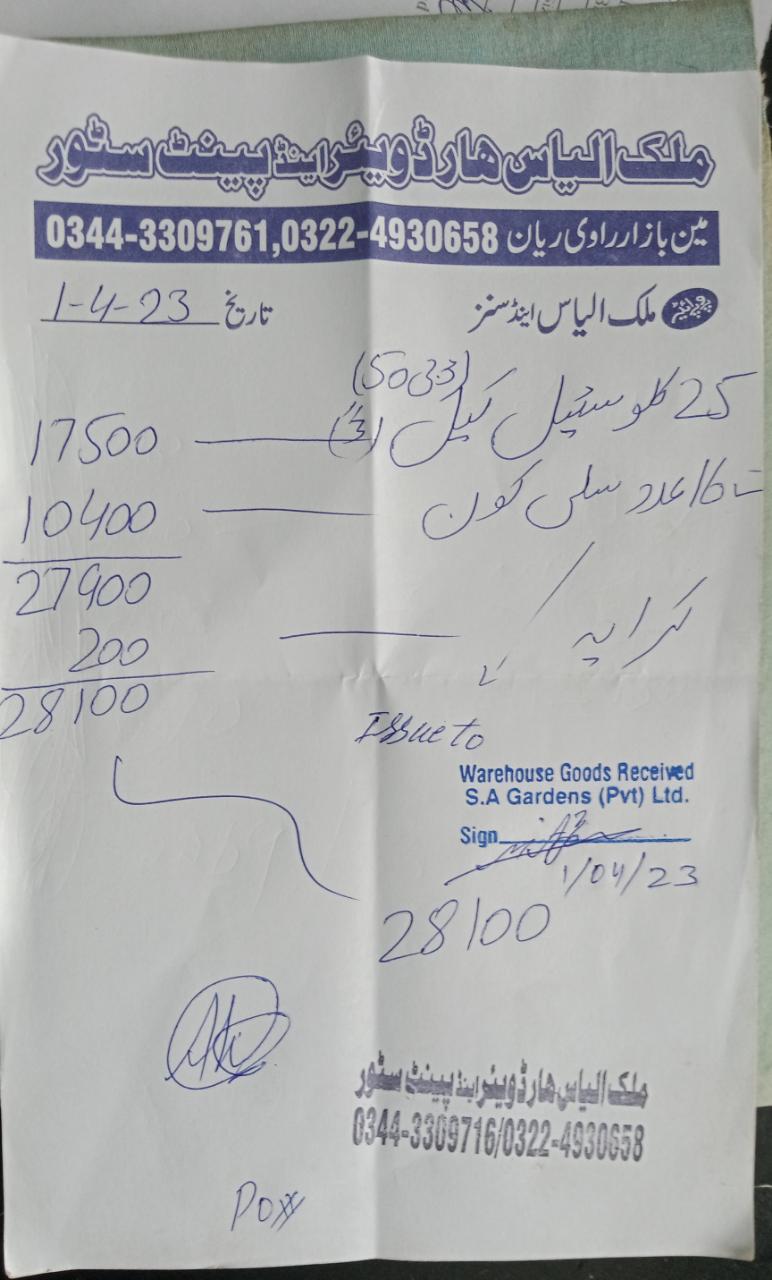 ملک الیاس ھارڈویئر اینڈ پینٹ سٹور
مین بازار راوی ریان 0344-3309761,0322-4930658
پروپرائیٹر ملک الیاس اینڈ سنز
تاریخ 1-4-23
25 کلو سٹیل کیل 17500
16 عدد سلی کون 10400
27900
کرایہ 200
28100
Issue to
Warehouse Goods Received
S.A Gardens (Pvt) Ltd.
Sign
1/04/23
28100
ملک الیاس ھارڈویئر اینڈ پینٹ سٹور
0344-3309716/0322-4930658